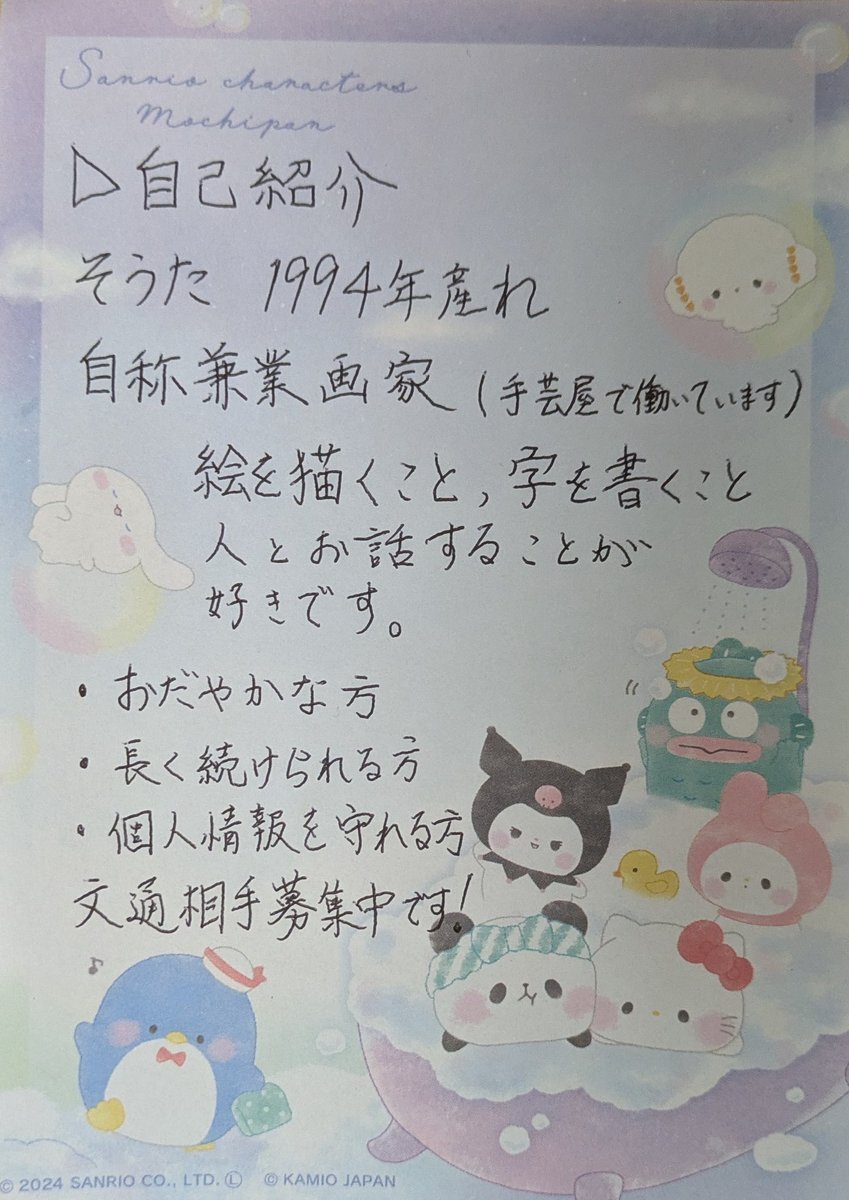 Sanrio characters
Mochipan
▷自己紹介
そうた 1994年産れ
自称兼業画家(手芸屋で働いています)
絵を描くこと,字を書くこと
人とお話することが
好きです。
・おだやかな方
・長く続けられる方
・個人情報を守れる方
文通相手募集中です!
© 2024 SANRIO CO., LTD. Ⓛ © KAMIO JAPAN